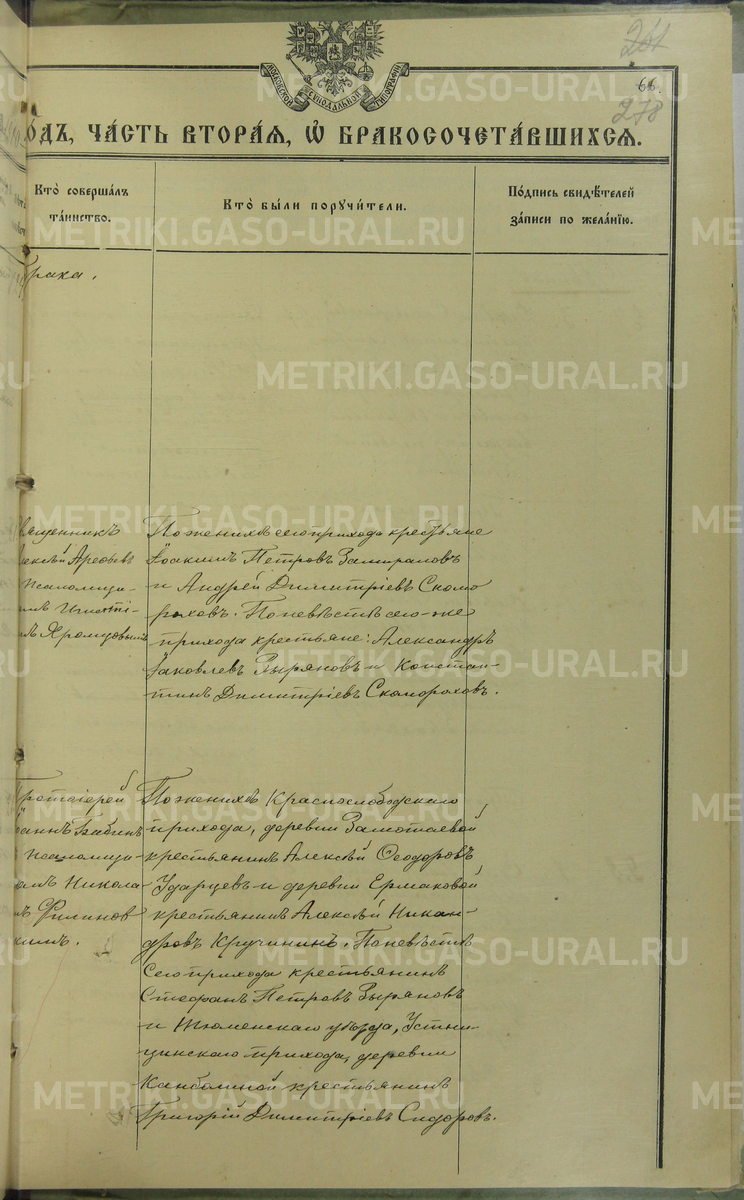 261
66.
278
МОСКОВСКОЙ СѴНОДАЛЬНОЙ ТИПОГРАФІИ
ОДЪ, ЧАСТЬ ВТОРАЯ, Ѡ БРАКОСОЧЕТАВШИХСЯ.
Кто совершалъ таинство.
Кто были поручители.
Подпись свидѣтелей записи по желанію.
брака.
Священникъ
Алексѣй Арефьевъ
псаломщи-
комъ
Хромцовымъ
По женихѣ сего прихода крестьяне
Іоакимъ Петровъ Замираловъ
и Андрей Димитріевъ Скомо
роховъ. По невѣстѣ сего-же
прихода крестьяне: Александръ
Іаковлевъ Зыряновъ и Констан-
тинъ Димитріевъ Скомороховъ.
Протоіерей
Іоаннъ Бабинъ
псаломщи-
комъ Никола
емъ Филинов
скимъ.
По женихѣ Краснослободскаго
прихода, деревни Замотаевой
крестьянинъ Алексѣй Ѳеодоровъ
Ударцевъ и деревни Ермаковой
крестьянинъ Алексѣй Никан-
дровъ Кручининъ. По невѣстѣ
сего прихода крестьянинъ
Стефанъ Петровъ Зыряновъ
и Тюменскаго уѣзда, Устни-
цинскаго прихода, деревни
крестьянинъ
Григорій Димитріевъ Сидоровъ.
METRIKI.GASO-URAL.RU